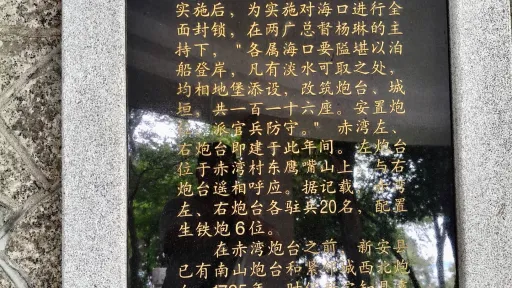 实施后，为实施对海口进行全
面封锁，在两广总督杨琳的主
持下，"各属海口要隘堪以泊
船登岸，凡有淡水可取之处，
均相地堡添设，改筑炮台、城
垣，共一百一十六座。安置炮
派官兵防守。" 赤湾左、
右炮台即建于此年间。左炮台
位于赤湾村东鹰嘴山上，与右
炮台遥相呼应。据记载，湾
左、右炮台各驻兵20名，配置
生铁炮6位。
在赤湾炮台之前，新安县
已有南山炮台和 城西北炮